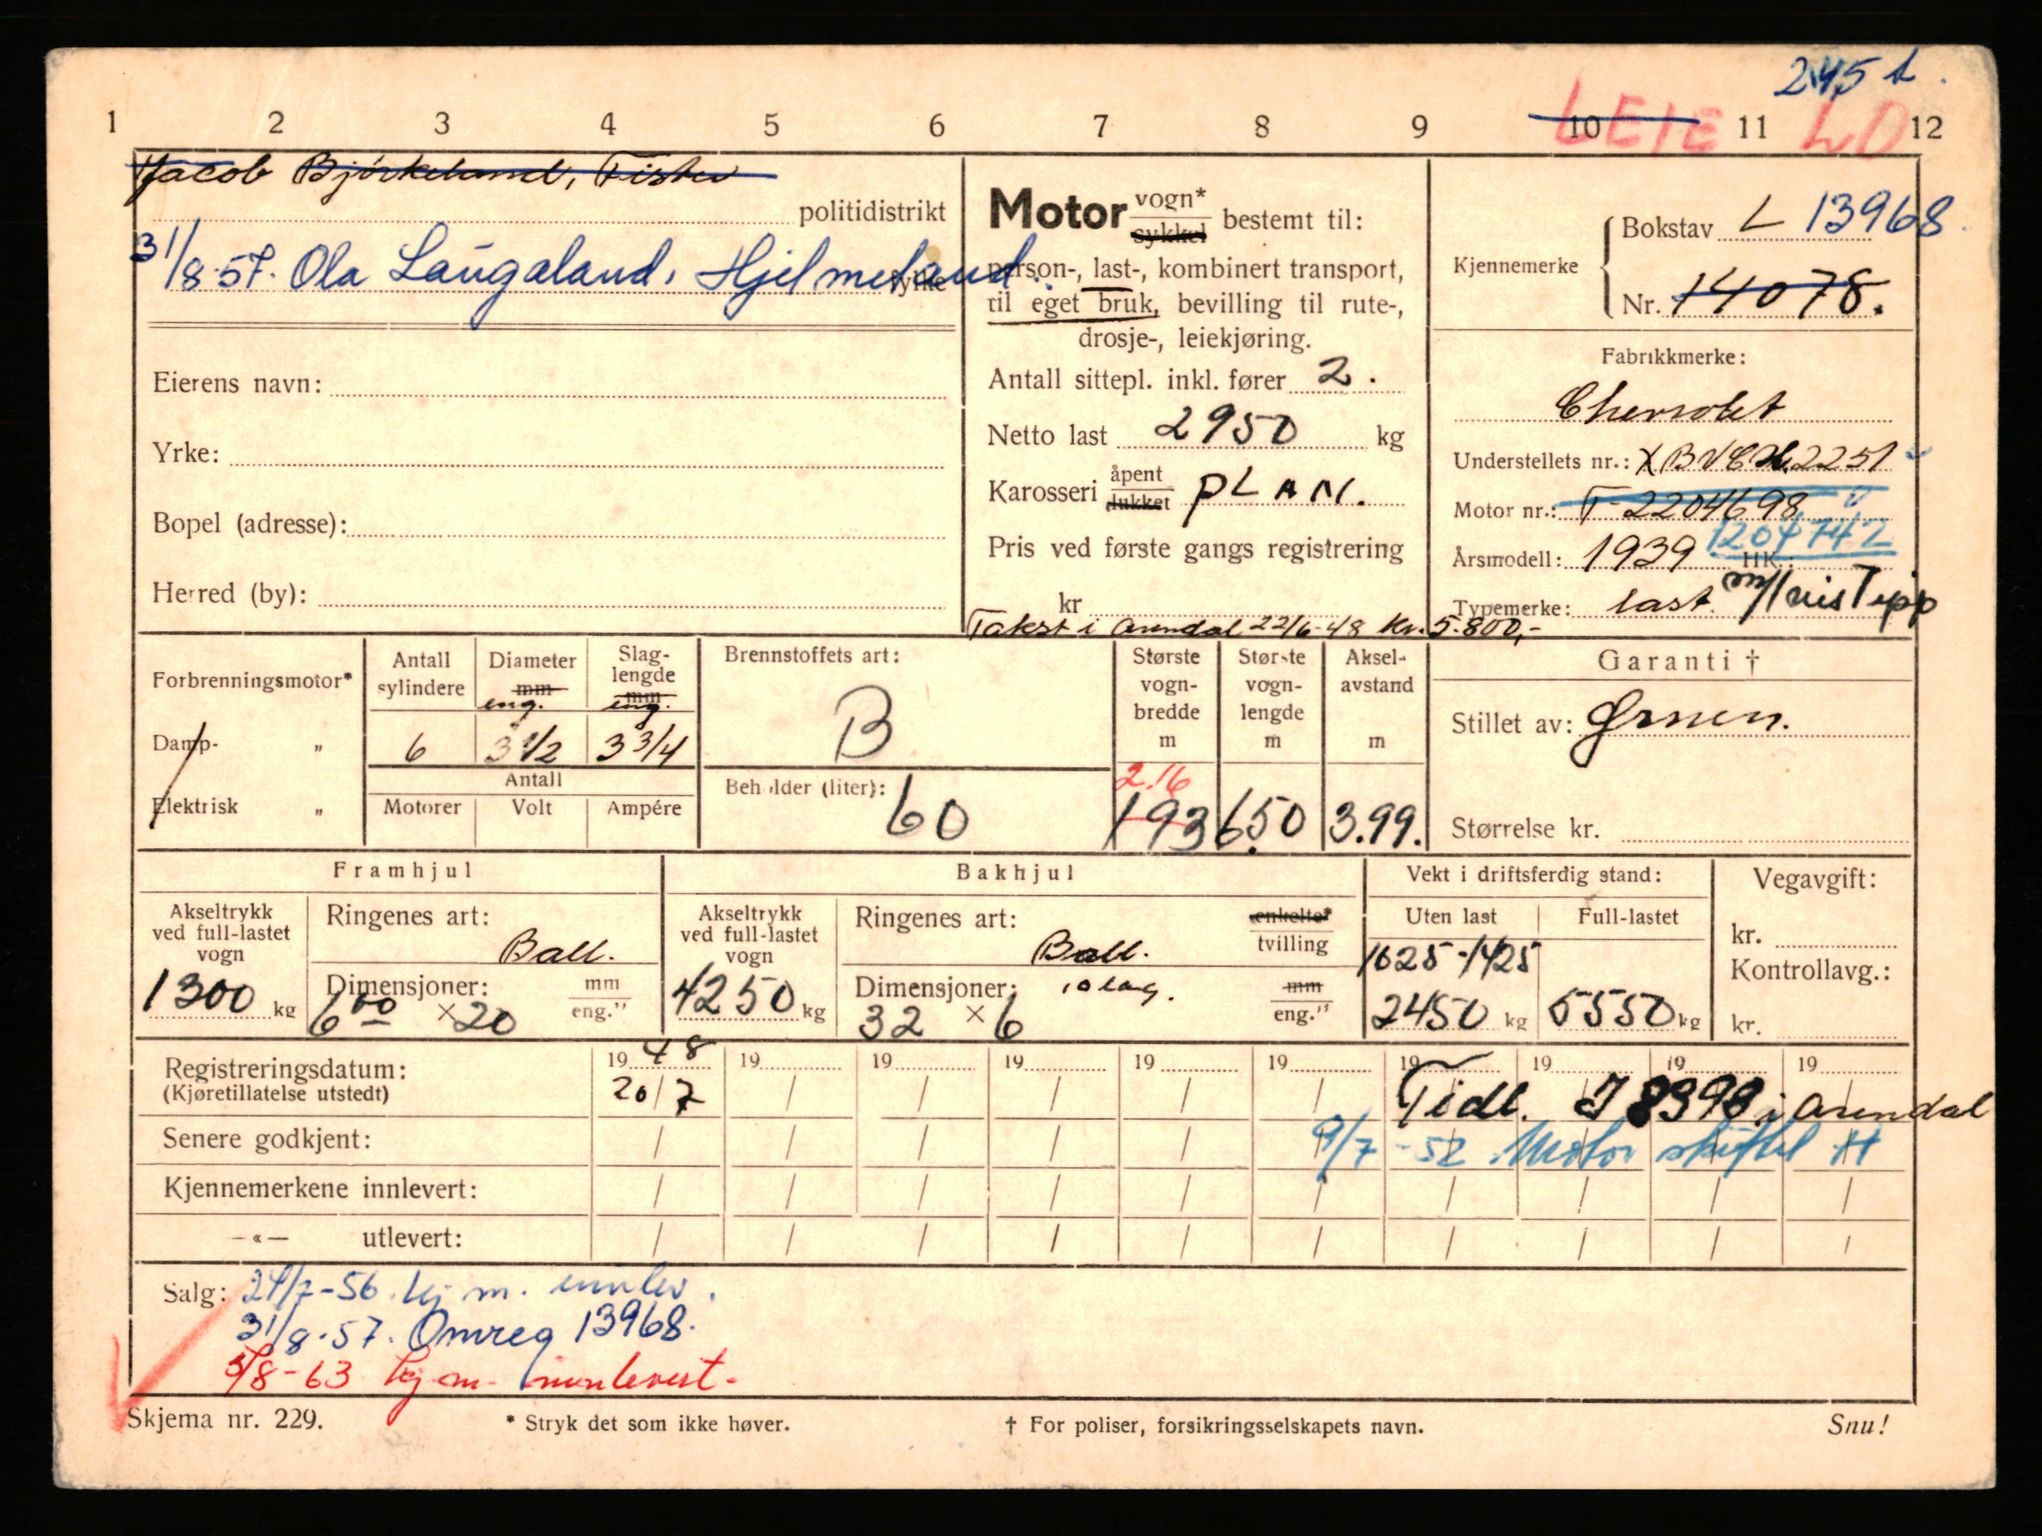 245 t.
LEIE LD
1 2 3 4 5 6 7 8 9 10 11 12
Jacob Bjørkeland, Fister
politidistrikt
31/8-57. Ola Laugaland, Hjelmeland
fylke
Eierens navn:
Yrke:
Bopel (adresse):
Herred (by):
Motor vogn* sykkel bestemt til:
person-, last-, kombinert transport,
til eget bruk, bevilling til rute-,
drosje-, leiekjøring.
Antall sittepl. inkl. fører 2.
Netto last 2950 kg
Karosseri åpent lukket PLAN.
Pris ved første gangs registrering
kr
Takst i Arendal 22/6-48 Kr. 5.800,-
Kjennemerke
Bokstav L 13968
Nr. 14078.
Fabrikkmerke:
Chevrolet
Understellets nr.: XBVEH.2251
Motor nr.: T-2204698
1204742
Årsmodell: 1939 HK.:
Typemerke: last. m/ Tipp
Forbrenningsmotor*
Damp- „
Elektrisk „
Antall sylindere
Diameter mm eng.
Slaglengde mm eng.
6 3 1/2 3 3/4
Antall
Motorer Volt Ampére
Brennstoffets art:
B
Beholder (liter): 60
Største vogn-bredde m
Største vogn-lengde m
Aksel-avstand m
2.16
193 6.50 3.99.
Garanti †
Stillet av: Ørnen.
Størrelse kr.
Framhjul
Akseltrykk ved full-lastet vogn
1300 kg
Ringenes art: Ball.
Dimensjoner: mm eng."
6 00 × 20
Bakhjul
Akseltrykk ved full-lastet vogn
4250 kg
Ringenes art: enkelte* tvilling
Ball.
Dimensjoner: 10 lag. mm eng."
32 × 6
Vekt i driftsferdig stand:
Uten last Full-lastet
1025-1425
2450 kg 5550 kg
Vegavgift:
kr.
Kontrollavg.:
kr.
Registreringsdatum: 1948 19 19 19 19 19 19 19 19 19
(Kjøretillatelse utstedt) 20/7 Tidl. I 8398 i Arendal
Senere godkjent: 9/7-52 Motor skiftet H
Kjennemerkene innlevert:
—«— utlevert:
Salg: 24/7-56. kj m. innlev.
31/8-57. Omreg 13968.
5/8-63 kj m. innlevert.
Skjema nr. 229.
* Stryk det som ikke høver.
† For poliser, forsikringsselskapets navn.
Snu!